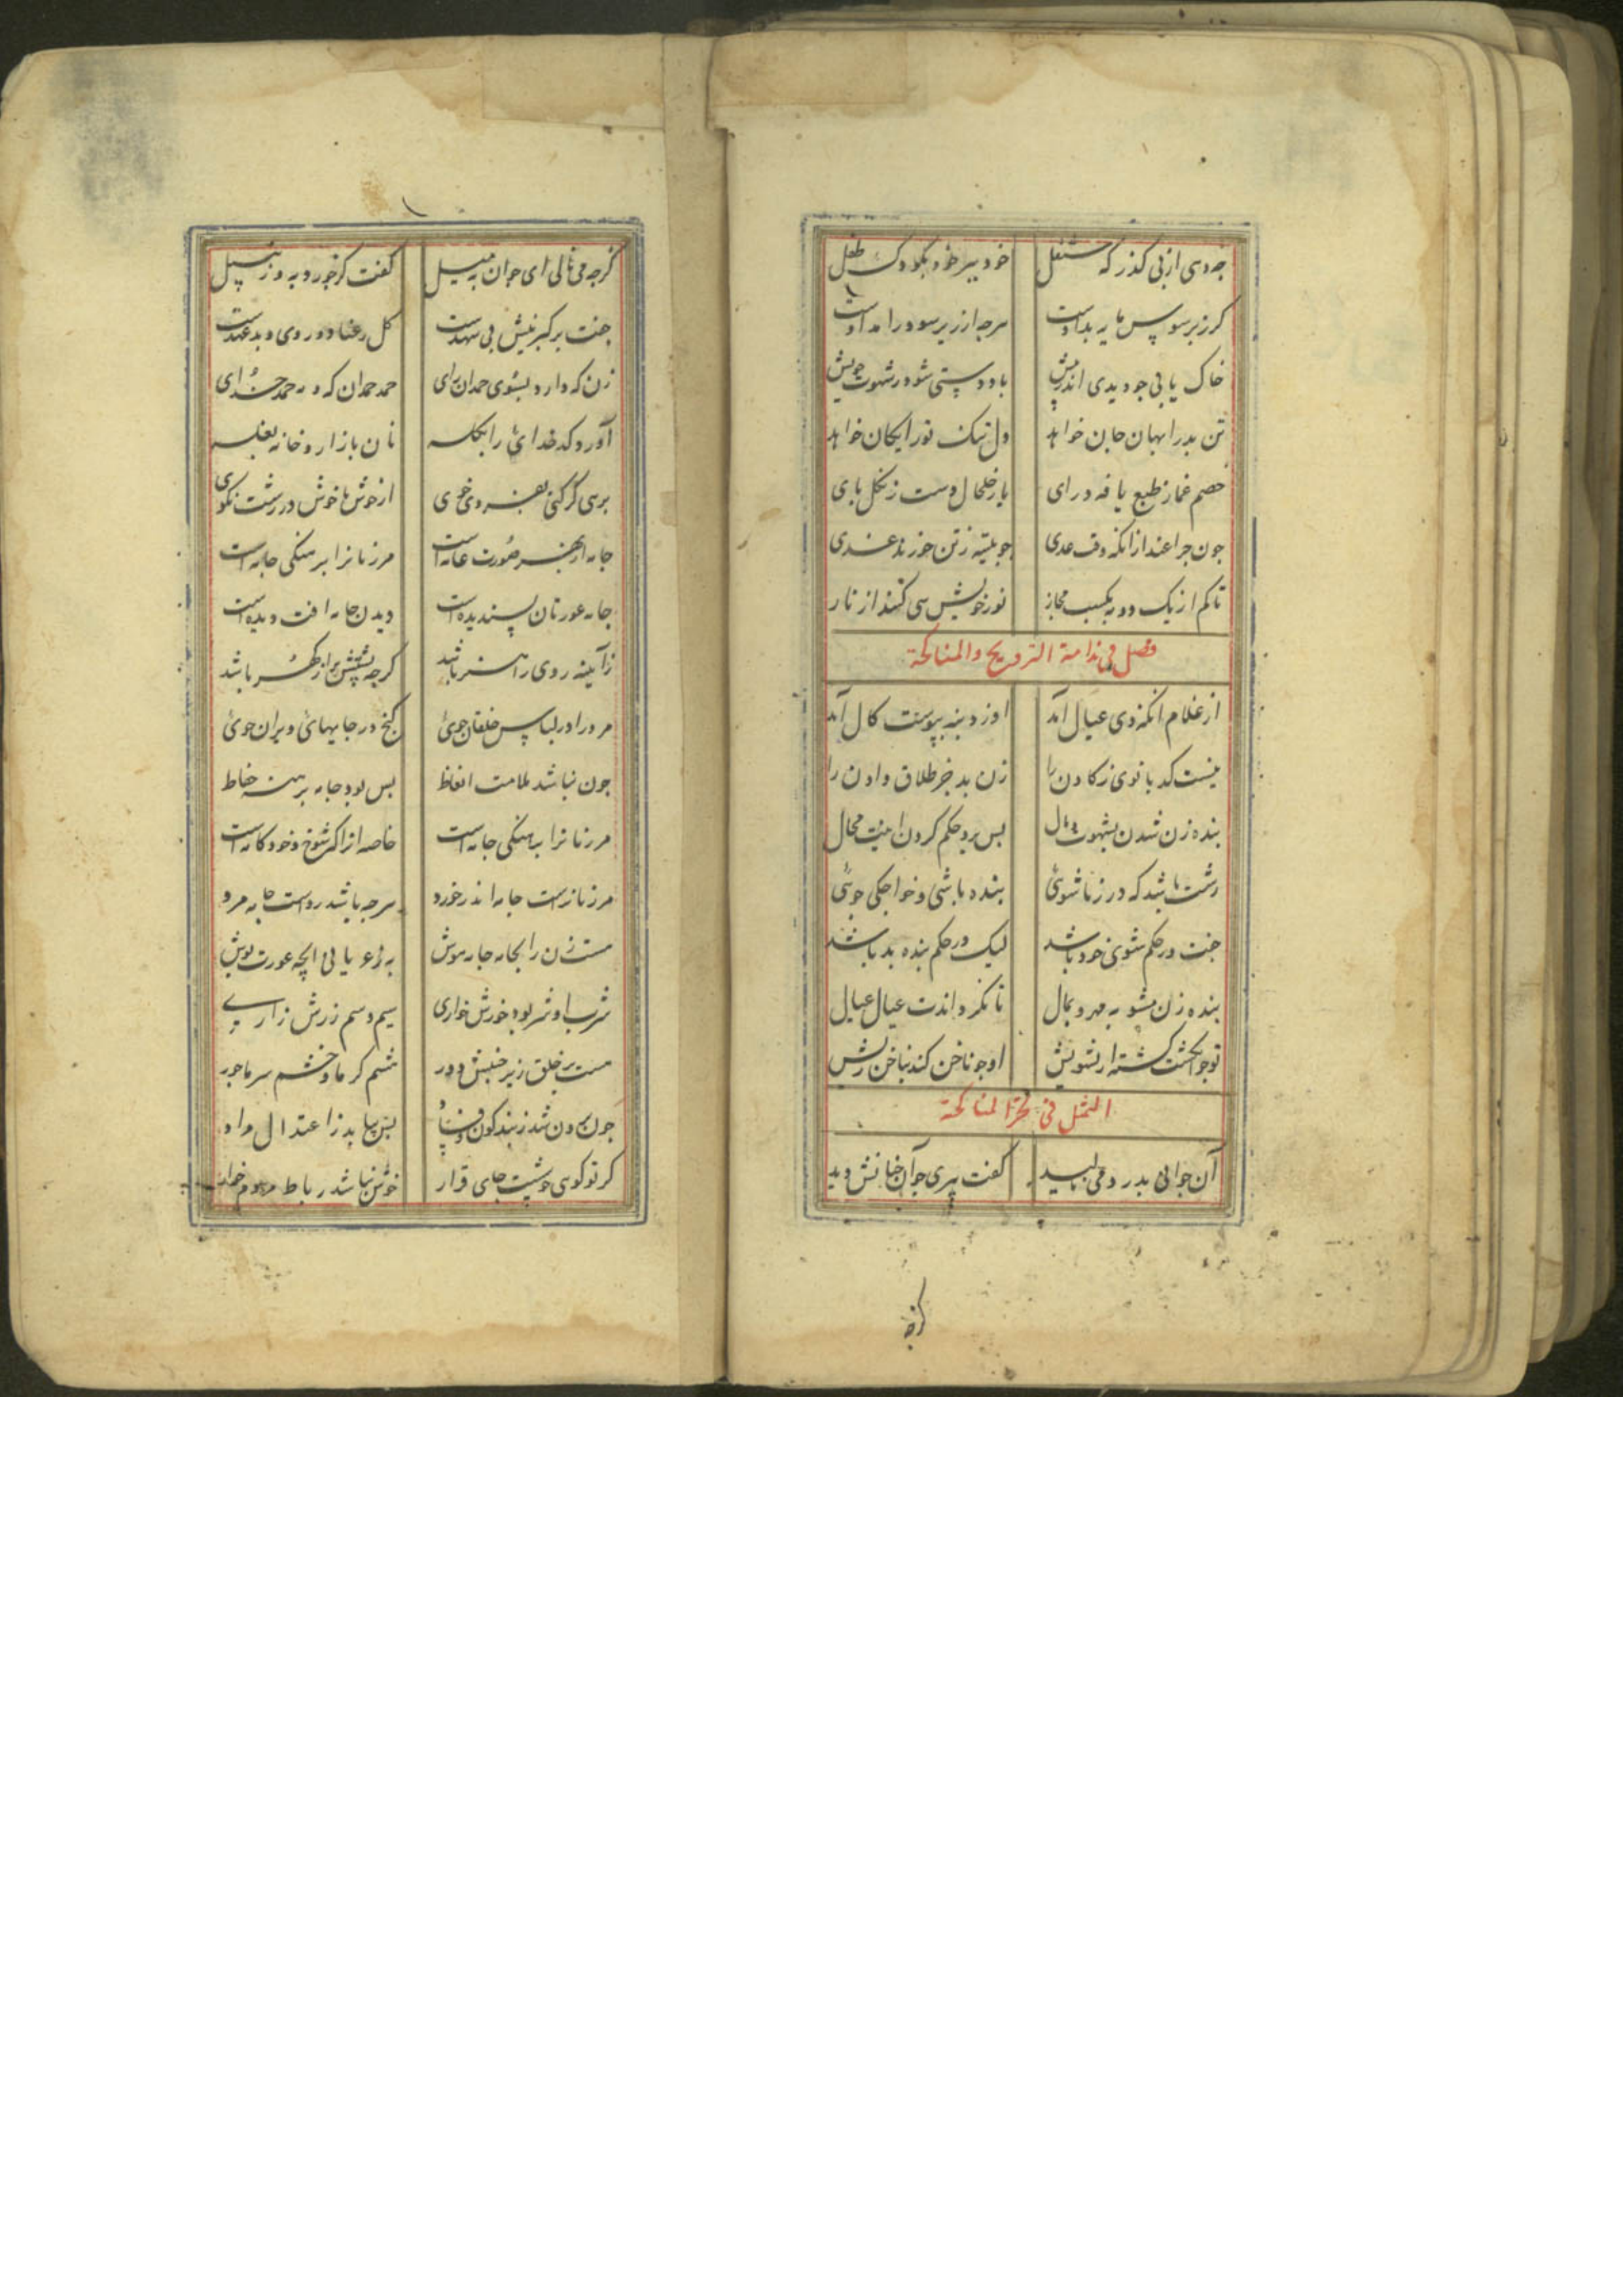 چه دمی از پی کذر که شغل خود ببر خود بکودک طفل
کر زبر سو پس مایه بداوست هرچه از زیر سو درامد اوست
خاک یابی جو دیدی اندر پیش باد دستی شود ز شهوت خویش
تن بدرا بهان جان خواهد دل نیک نور ایکان خواهد
خصم غماز طبع یافه درای یار خلخال دست زنکل بای
تا کم از یک دو به یکسب مجاز نور خویش سی کنند از نار
فصل فی ندامة التزویج والمناکحة
از غلام انکه ذی عیال آمد او ز دنبه بپوست کال آمد
نیست کدبانوی ز کادن را زن بد جز طلاق دادن را
بنده زن شدن بشهوت و مال بس برو حکم کردن اینت محال
زشت باشد که در زناشوئی بنده باشی و خواجکی جوئی
جفت در حکم شوی خود باشد لیک در حکم بنده بد باشد
بنده زن مشو به مهر و بمال تا نکرداندت عیال عیال
تو جو انکشت کشته از تشویش او جو ناخن کند بناخن ریش
التمثل فی المناکحة
آن جوانی بدرد می نالید کفت پیری جو آن جنانش دید
کرجه
کرجه می نالی ای جوان به سبیل کفت کز خورد به و زنبیل
جفت بر کبر نیش بی شهدست کل رعنا دو روی و بدعهدست
زن که دارد بشوی حمدان رای حمد حمدان کند نه حمد خدای
آورد کدخدائی را بکله نان بازار و خانه بغله
برسی کر کنی بغز و خوی از خوش ناخوش و ز زشت نکوی
جامه از بهر صورت عامه است مر زنانرا برهنکی جامه است
جامه عورتان پسندیده است دیدن جامه آفت دیده است
زآینه روی را هنر باشد کرجه پشتش پر از کهر باشد
مرد را در لباس خلقان جوی کنج در جایهای ویران جوی
جون نباشد ملامت الفاظ بس بود جامه برهنه حفاظ
مر زنانرا برهنکی جامه است خاصه آنرا که شوخ و خودکامه است
مر زنانراست جامه اندر خورد هرجه باشد رواست جامه مرد
مست زن را بجامه جامه موش به زعریانی انچه عورت پوش
شرب او شر بود خورش خواری سیم او سم زرش زاری
مست بر خلق زیر جنبش دور خشم کرما و خشم سرما جور
جون برون شد ز بند کون و فساد بس بیابد ز اعتدال مراد
کر تو کوی خوشست جای قرار خوش نباشد رباط مردم خوار